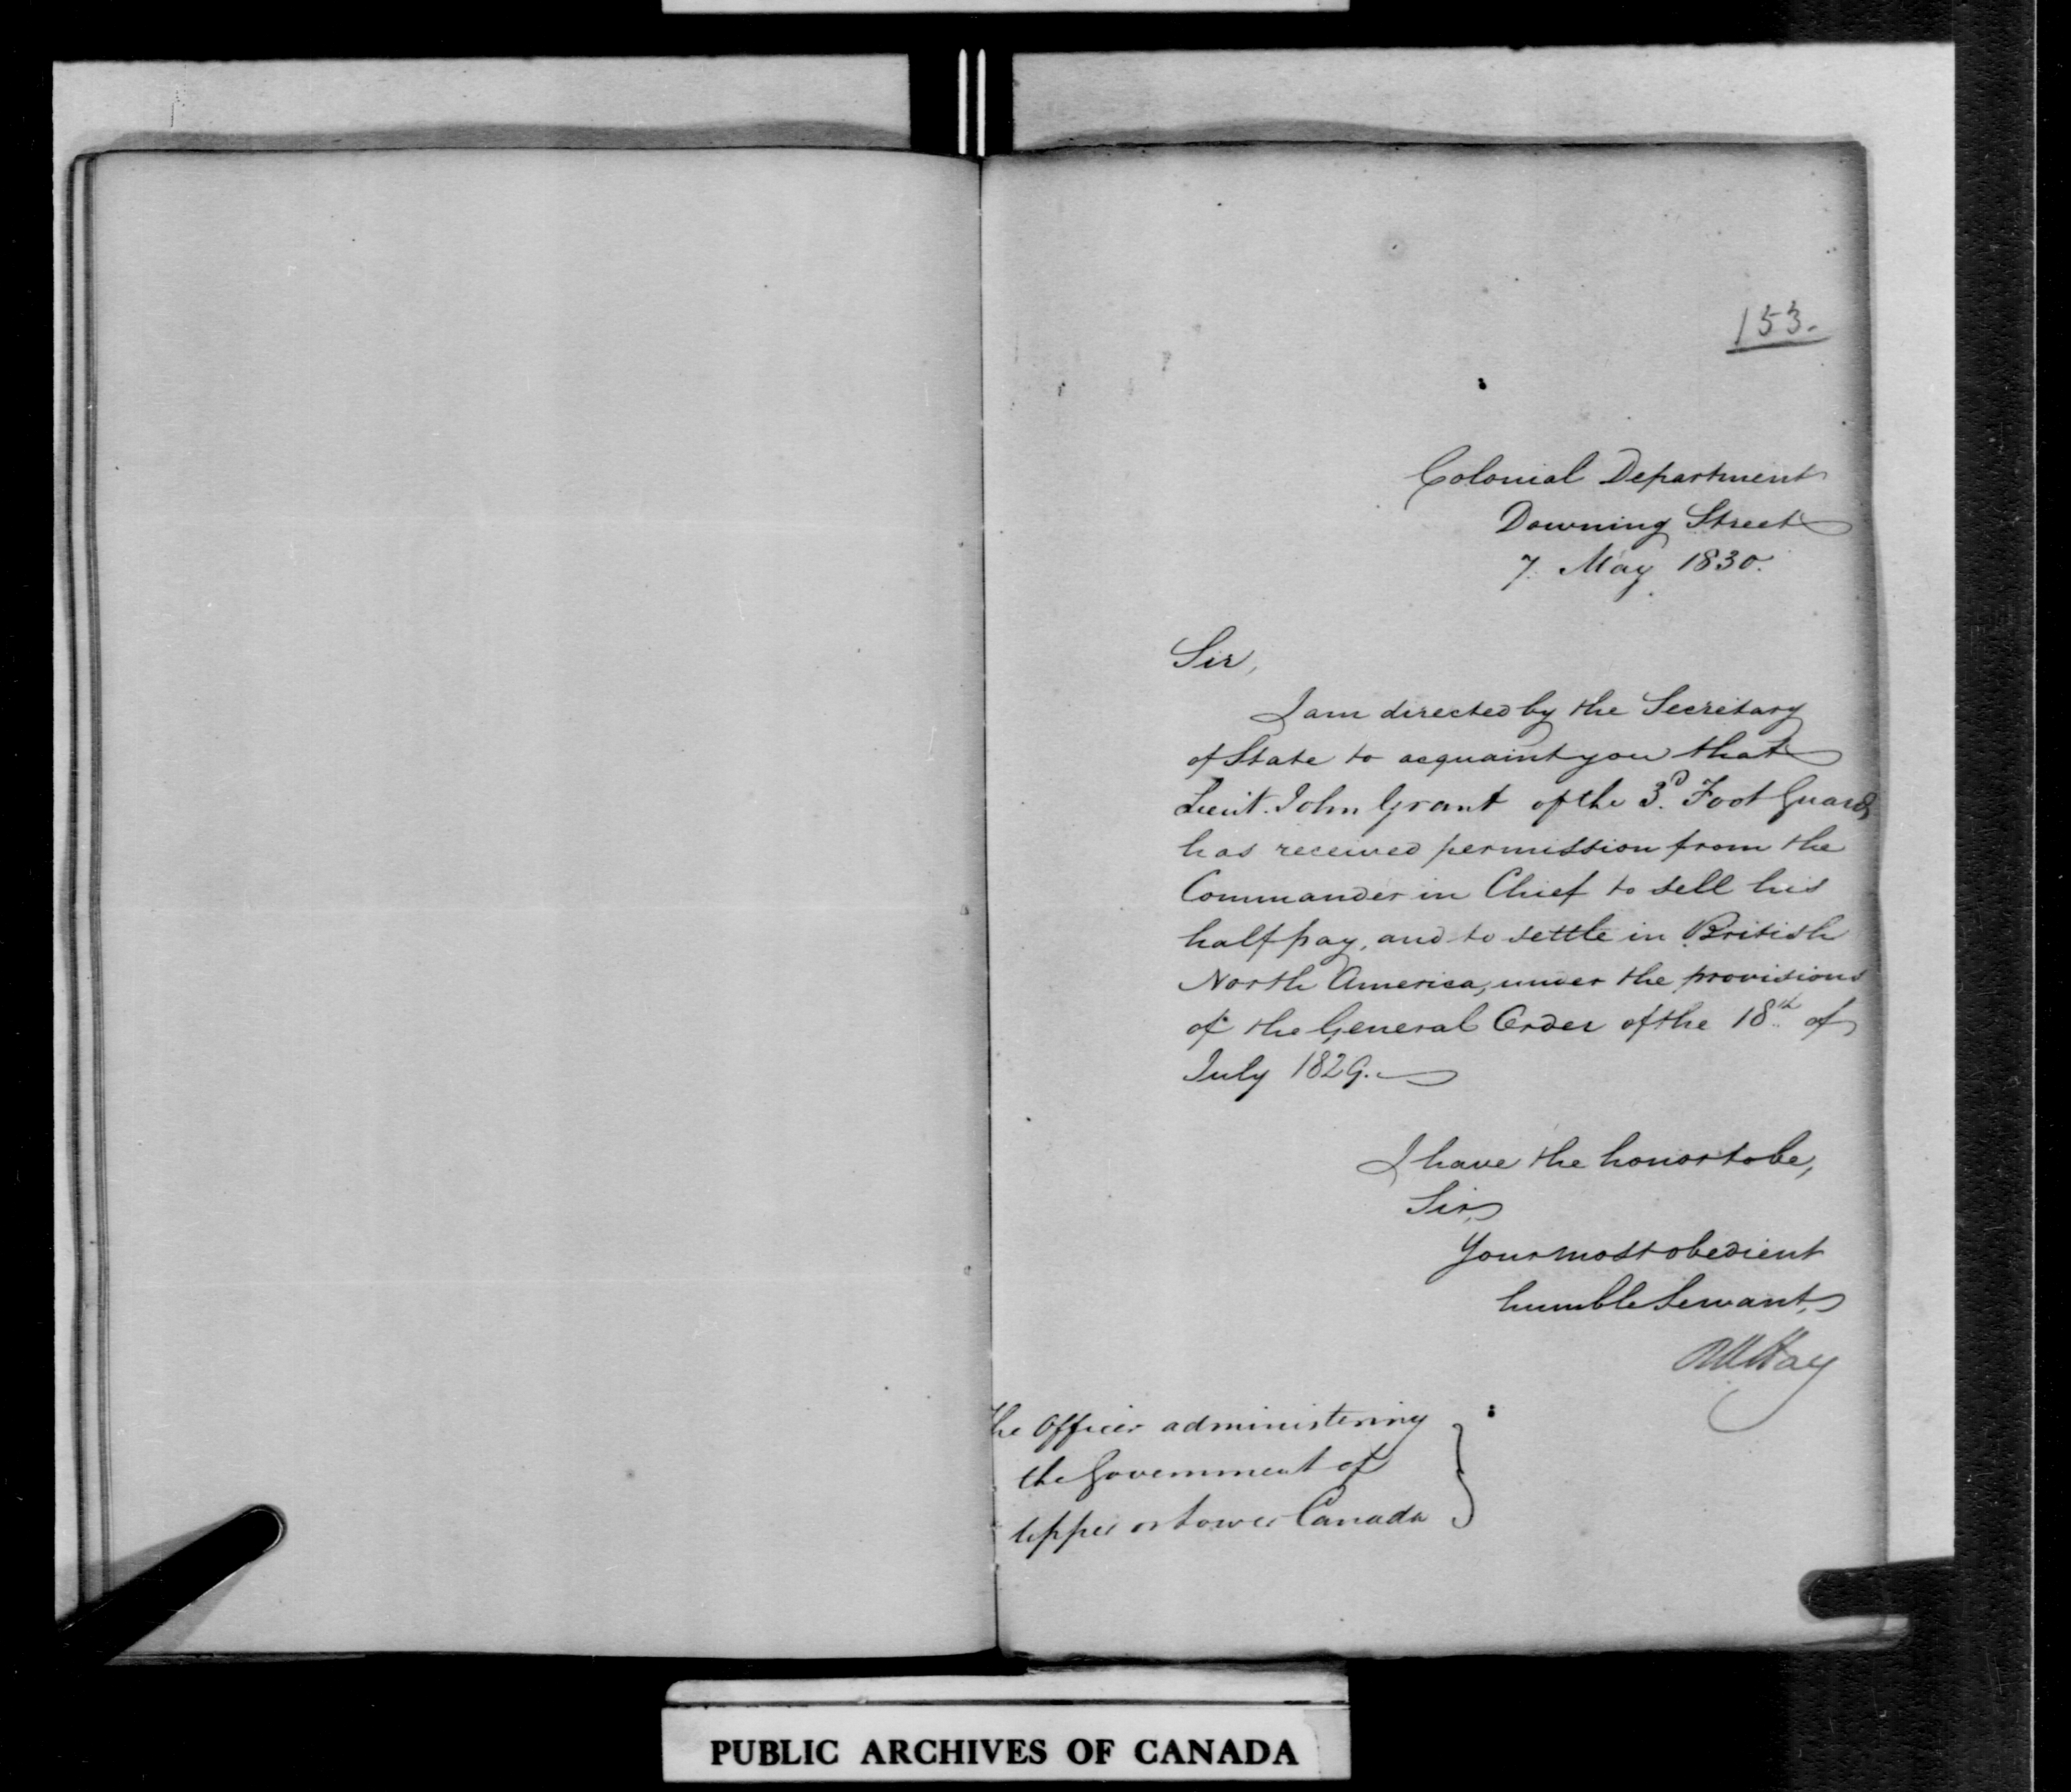 153.
Colonial Department
Downing Street
7. May 1830.
Sir,
I am directed by the Secretary
of State to acquaint you that
Lieut. John Grant of the 3.d Foot Guards
has received permission from the
Commander in Chief to sell his
half pay, and to settle in British
North America, under the provisions
of the General Order of the 18.th of
July 1829.
I have the honor to be,
Sir,
Your most obedient
humble Servant,
RW Hay
The Officer administering
the Government of
Upper or Lower Canada
PUBLIC ARCHIVES OF CANADA